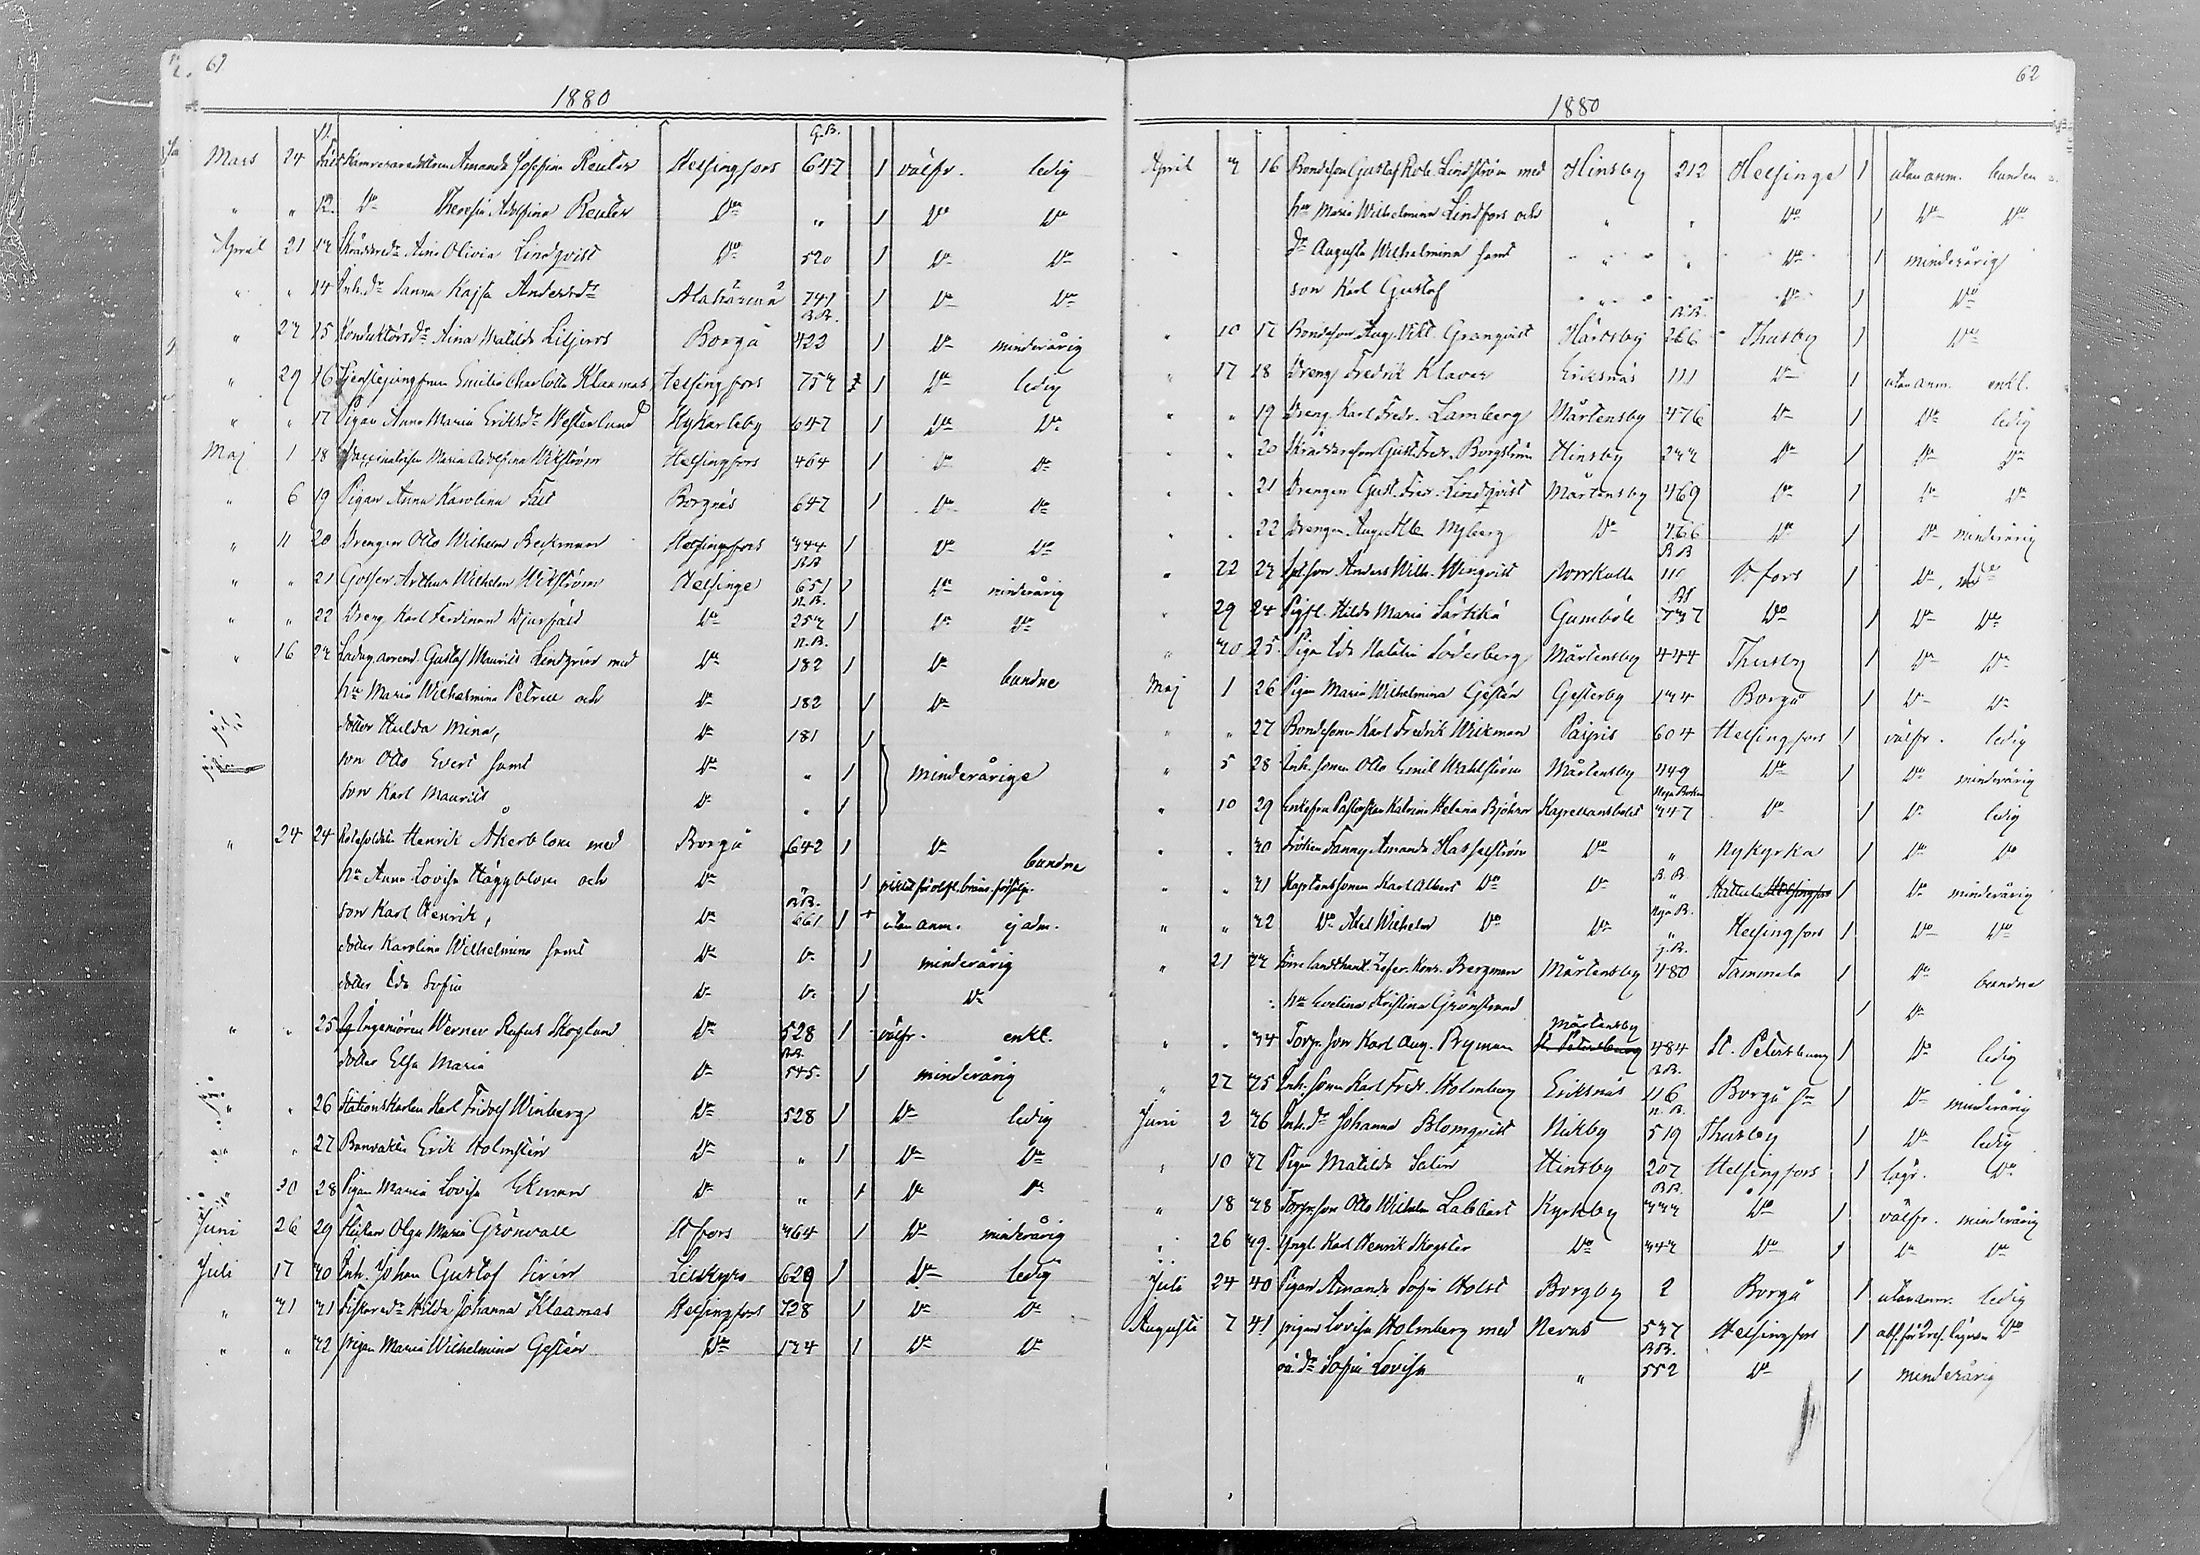 61
1880
G.B.
Mars 24 11. Amanda Josefina Reuter Helsingfors 647 1 välfr. ledig
" " 12. Do Theresia Adolfina Reuter Do " 1 Do Do
April 21 13 Aina Olivia Lindqvist Do 520 1 Do Do
" " 14 Inh.dr Sanna Kajsa Andersdr Alahärmä 741 1 Do Do
B.B.
" 23 15 Konduktörsdr Aina Matilda Liljeros Borgå 423 1 Do minderårig
" 29 16 Emilia Charlotta Klaamas Helsingfors 753 1 Do ledig
" " 17 Pigan Anna Maria Eriksdr Westerlund Nykarleby 647 1 Do Do
Maj 1 18 Maria Adolfina Wikström Helsingfors 464 1 Do Do
" 6 19 Pigan Anna Karolina Fält Borgnäs 647 1 Do Do
" 11 20 Drengen Otto Wilhelm Beckman Helsingfors 344 1 Do Do
B.B.
" " 21 Gossen Arthur Wilhelm Wikström Helsinge 651 1 Do minderårig
N.B.
" " 22 Dreng Karl Ferdinand Djurfält Do 253 1 Do Do
N.B.
" 16 23 Ladug.arrend. Gustaf Maurits Lindqvist med Do 182 1 Do bundne
hu Maria Wilhelmina Petrell och Do 182 1 Do
dotter Hulda Mina, Do 181 1
son Otto Evert samt Do " 1 minderårige
son Karl Maurits Do " 1
" 24 24 Henrik Åkerblom med Borgå 642 1 Do bundne
hu Anna Lovisa Häggblom och Do " 1
B.B.
son Karl Henrik, Do 661 1 + utan anm. ej adm.
dotter Karolina Wilhelmina samt Do Do 1 minderårig
dotter Ida Sofia Do Do 1 Do
" " 25 Ingeniören Werner Rufus Skoglund Do 528 1 välfr. enkl.
B.B.
dotter Elsa Maria Do 545. 1 minderårig
" " 26 Stationskarlen Karl Fridolf Winberg Do 528 1 Do ledig
" " 27 Banvakten Erik Holmstén Do " 1 Do Do
" 30 28 Pigan Maria Lovisa Ekman Do " 1 Do Do
Juni 26 29 Olga Maria Grönvall Hfors 364 1 Do minderårig
Juli 17 30 Inh. Johan Gustaf Sirén Lillkyro 629 1 Do ledig
" 31 31 Fiskaredr Hilda Johanna Klaamas Helsingfors 728 1 Do Do
" " 32 pigan Maria Wilhelmina Gestén Do 134 1 Do Do
62
1880
April 3 16 Bondeson Gustaf Rob. Lindström med Hinsby 212 Helsinge 1 utan anm. bunden
hu Maria Wilhelmina Lindfors och " " Do 1 Do Do
dr Augusta Wilhelmina samt " " Do 1 minderårig
son Karl Gustaf " " Do 1 Do
B.B.
" 10 17 Bondeson Aug. Vikt. Granqvist Hårtsby 266 Thusby 1 Do
" 17 18 Dreng Fredrik Klaver Eriksnäs 111 Do 1 utan anm. enkl.
" " 19 Dreng Karl Fredr. Lamberg Mårtensby 476 Do 1 Do ledig
" " 20 Skräddareson Gust. Fredr. Borgström Hinsby 233 Do 1 Do Do
" " 21 Drengen Gust. Fredr. Lindqvist Mårtensby 469 Do 1 Do Do
" " 22 Drengen Aug. Alb. Nyberg Do 466 Do 1 Do minderårig
B.B.
" 22 23 Anders Wilh. Winqvist Norrkulla 110 Hfors 1 Do
" 29 24 Hilda Maria Särkkä Gumböle 737 Do 1 Do Do
" 30 25. Pigan Ida Natalia Söderberg Mårtensby 444 Thusby 1 Do Do
Maj 1 26 Pigan Maria Wilhelmina Gestén Gesterby 134 Borgå 1 Do Do
" " 27 Bondesonen Karl Fredrik Wickman Paipis 604 Helsingfors 1 välfr. ledig
" 5 28 Inh. sonen Otto Emil Wahlström Mårtensby 449 Do 1 Do minderårig
Nya Boken
" 10 29 Enkefru Katrina Helena Kapellansbolet 347 Do 1 Do ledig
" " 30 Fröken Fanny Amanda Hasselström Do " Nykyrka 1 Do Do
B.B.
" " 31 Kaptenssonen Karl Albert Do Do " Hattula Helsingfors 1 Do minderårig
Nya B.
" " 32 Do Axel Wilhelm Do Do " Helsingfors 1 Do Do
G.B.
" 21 33 Bergman Mårtensby 480 Tammela 1 Do bundne
hu Evelina Kristina Grönstrand 1 Do
Mårtensby
" " 34 Torp. son Karl Aug. Ryman St. Petersburg 484 St. Petersburg 1 Do ledig
B.B.
" 27 35 Inh. sonen Karl Fredr. Holmberg Eriksnäs 116 Borgå sn 1 Do minderårig
N.B.
Juni 2 36 Inh.dr Johanna Blomqvist Nikby 519 Thusby 1 Do ledig
" 10 37 Pigan Matilda Salin Hinsby 207 Helsingfors 1 lägr. Do
B.B.
" 18 38 Torp.son Otto Wilhelm Labbart Kyrkby 333 Do 1 välfr. minderårig
" 26 39. Yngl. Karl Henrik Skogster Do 343 Do 1 Do Do
Juli 24 40 Pigan Amanda Sofia Holst Borgby 2 Borgå 1 utan anm. ledig
Augusti 7 41 pigan Lovisa Holmberg med Nevas 537 Helsingfors 1 Do
B.B.
oä. dr Sofia Lovisa " 552 Do 1 minderårig